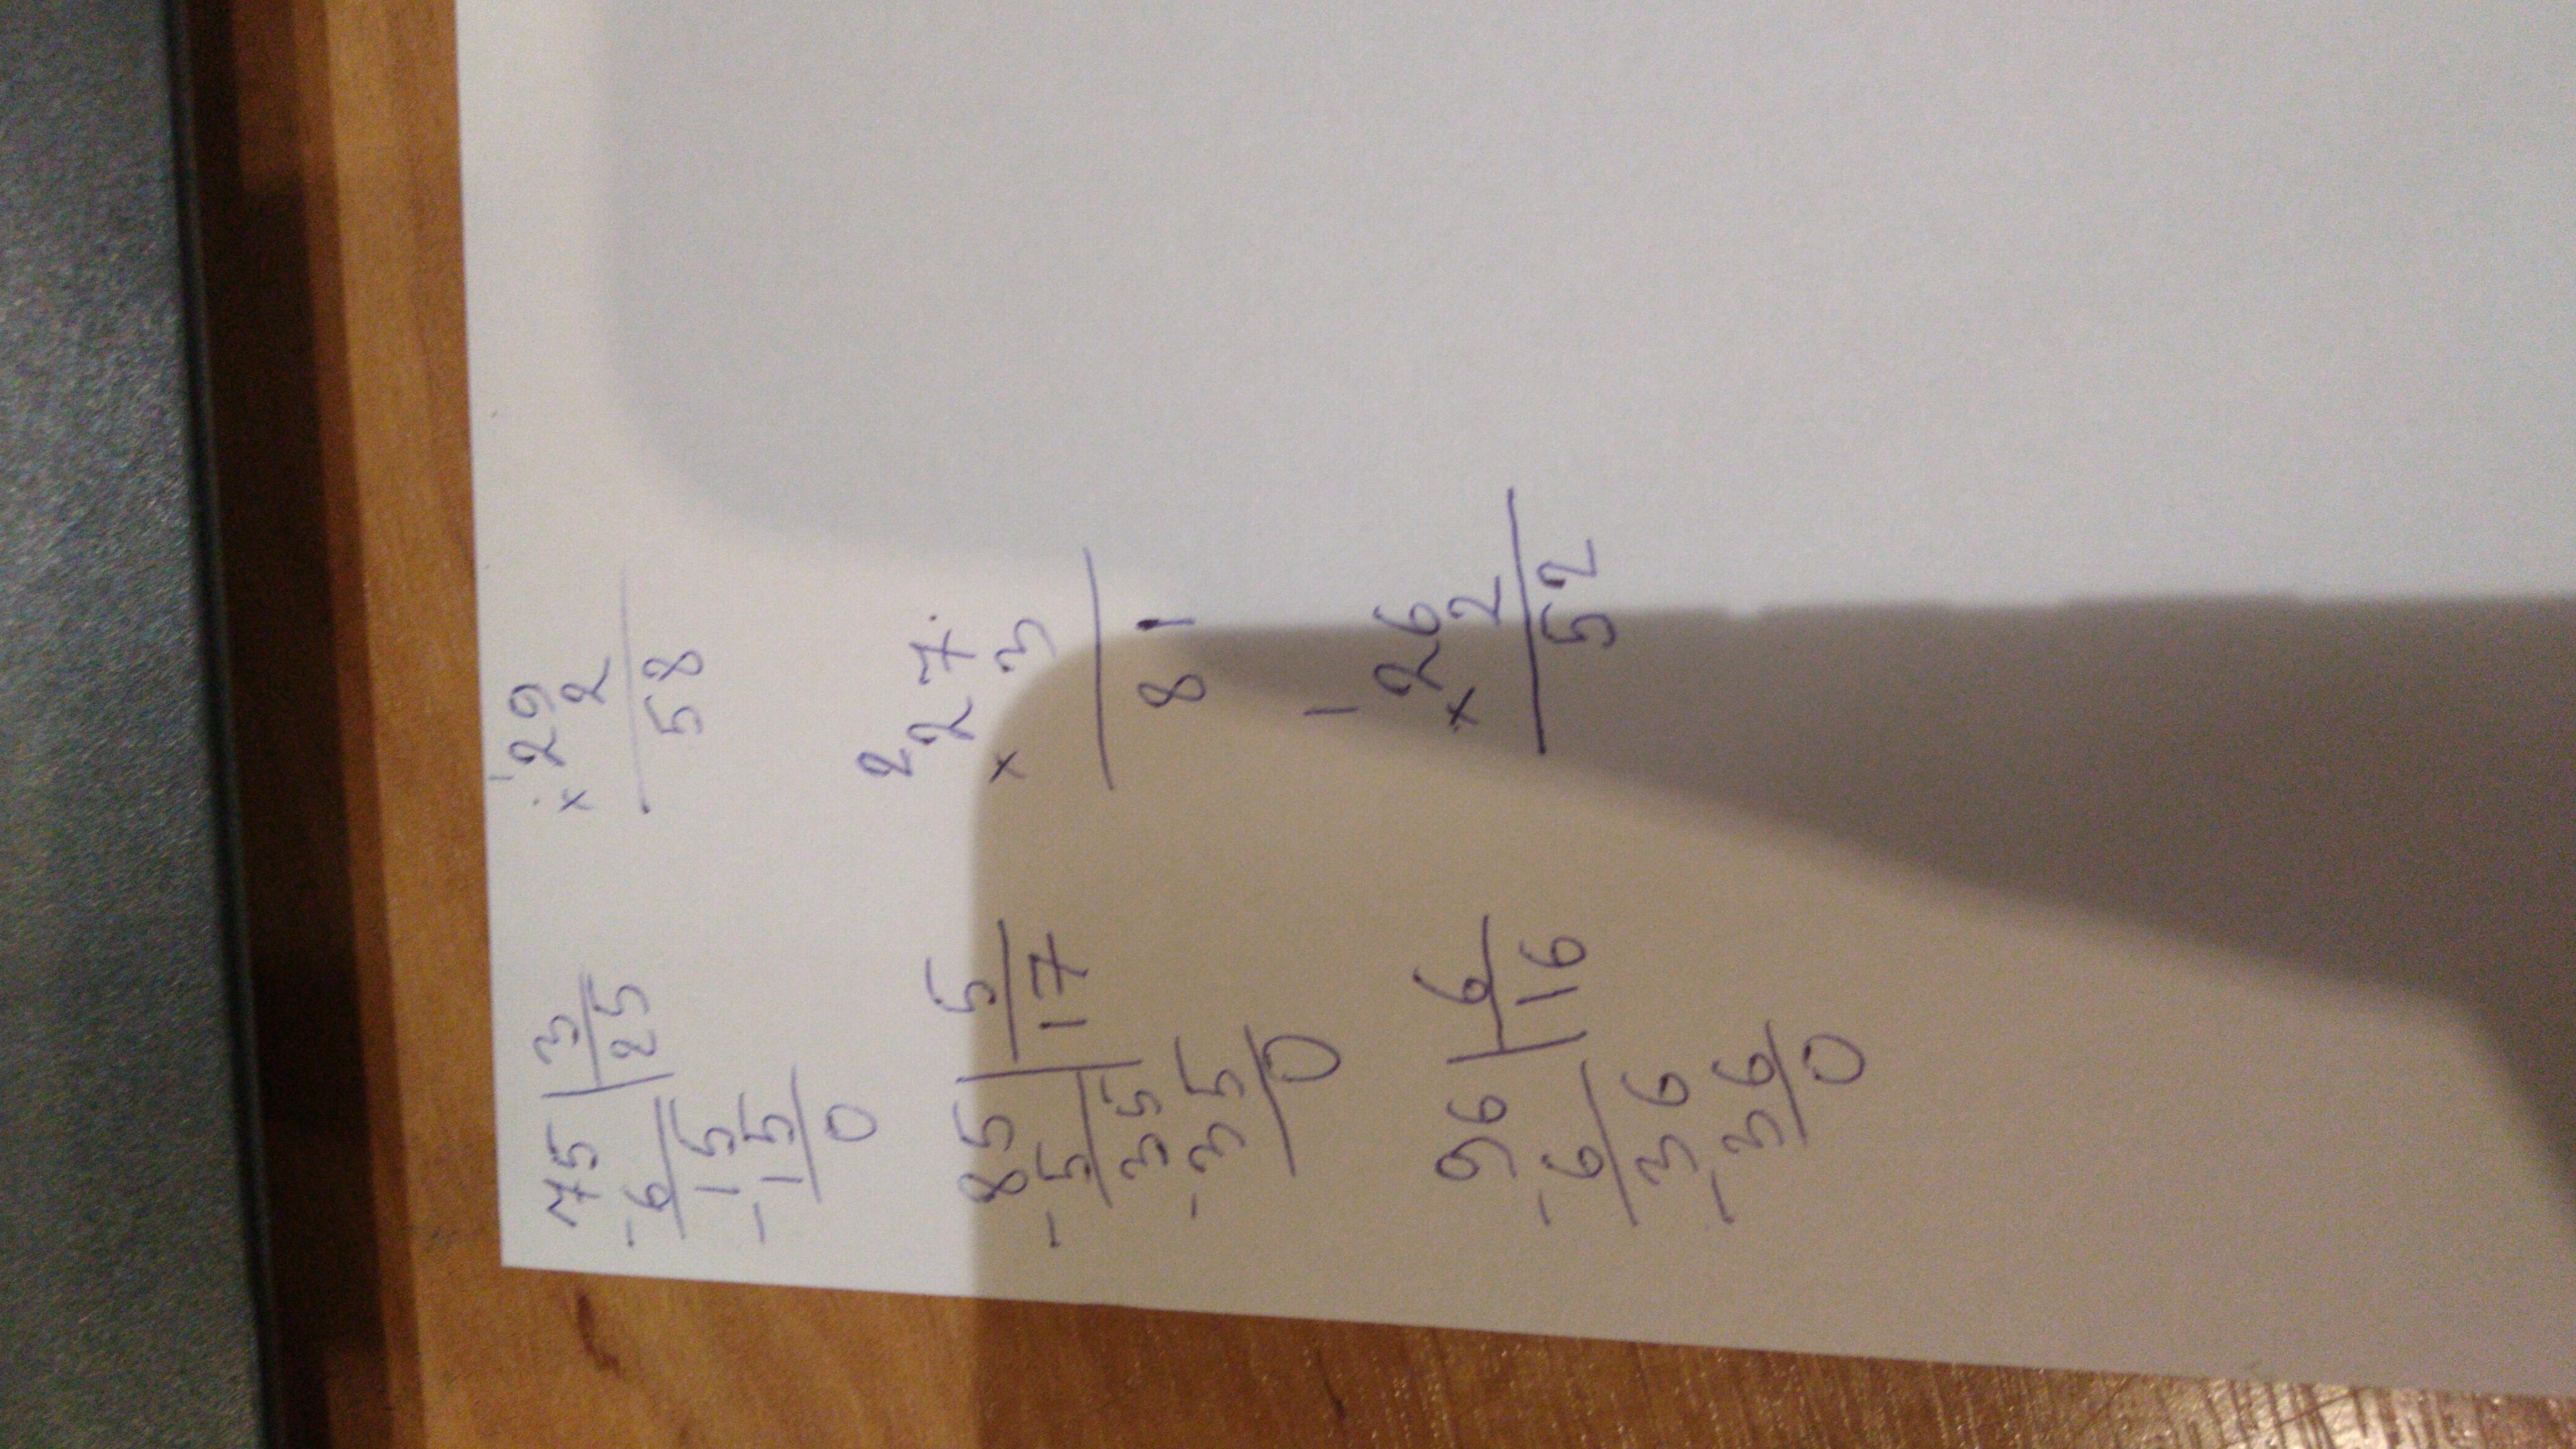 75 | 3     ¹29
-6 | 25    × 2
15         58
-15
0
85 | 5     ²27
-5 | 17    × 3
35         81
-35
0
96 | 6     ¹26
-6 | 16    × 2
36         52
-36
0